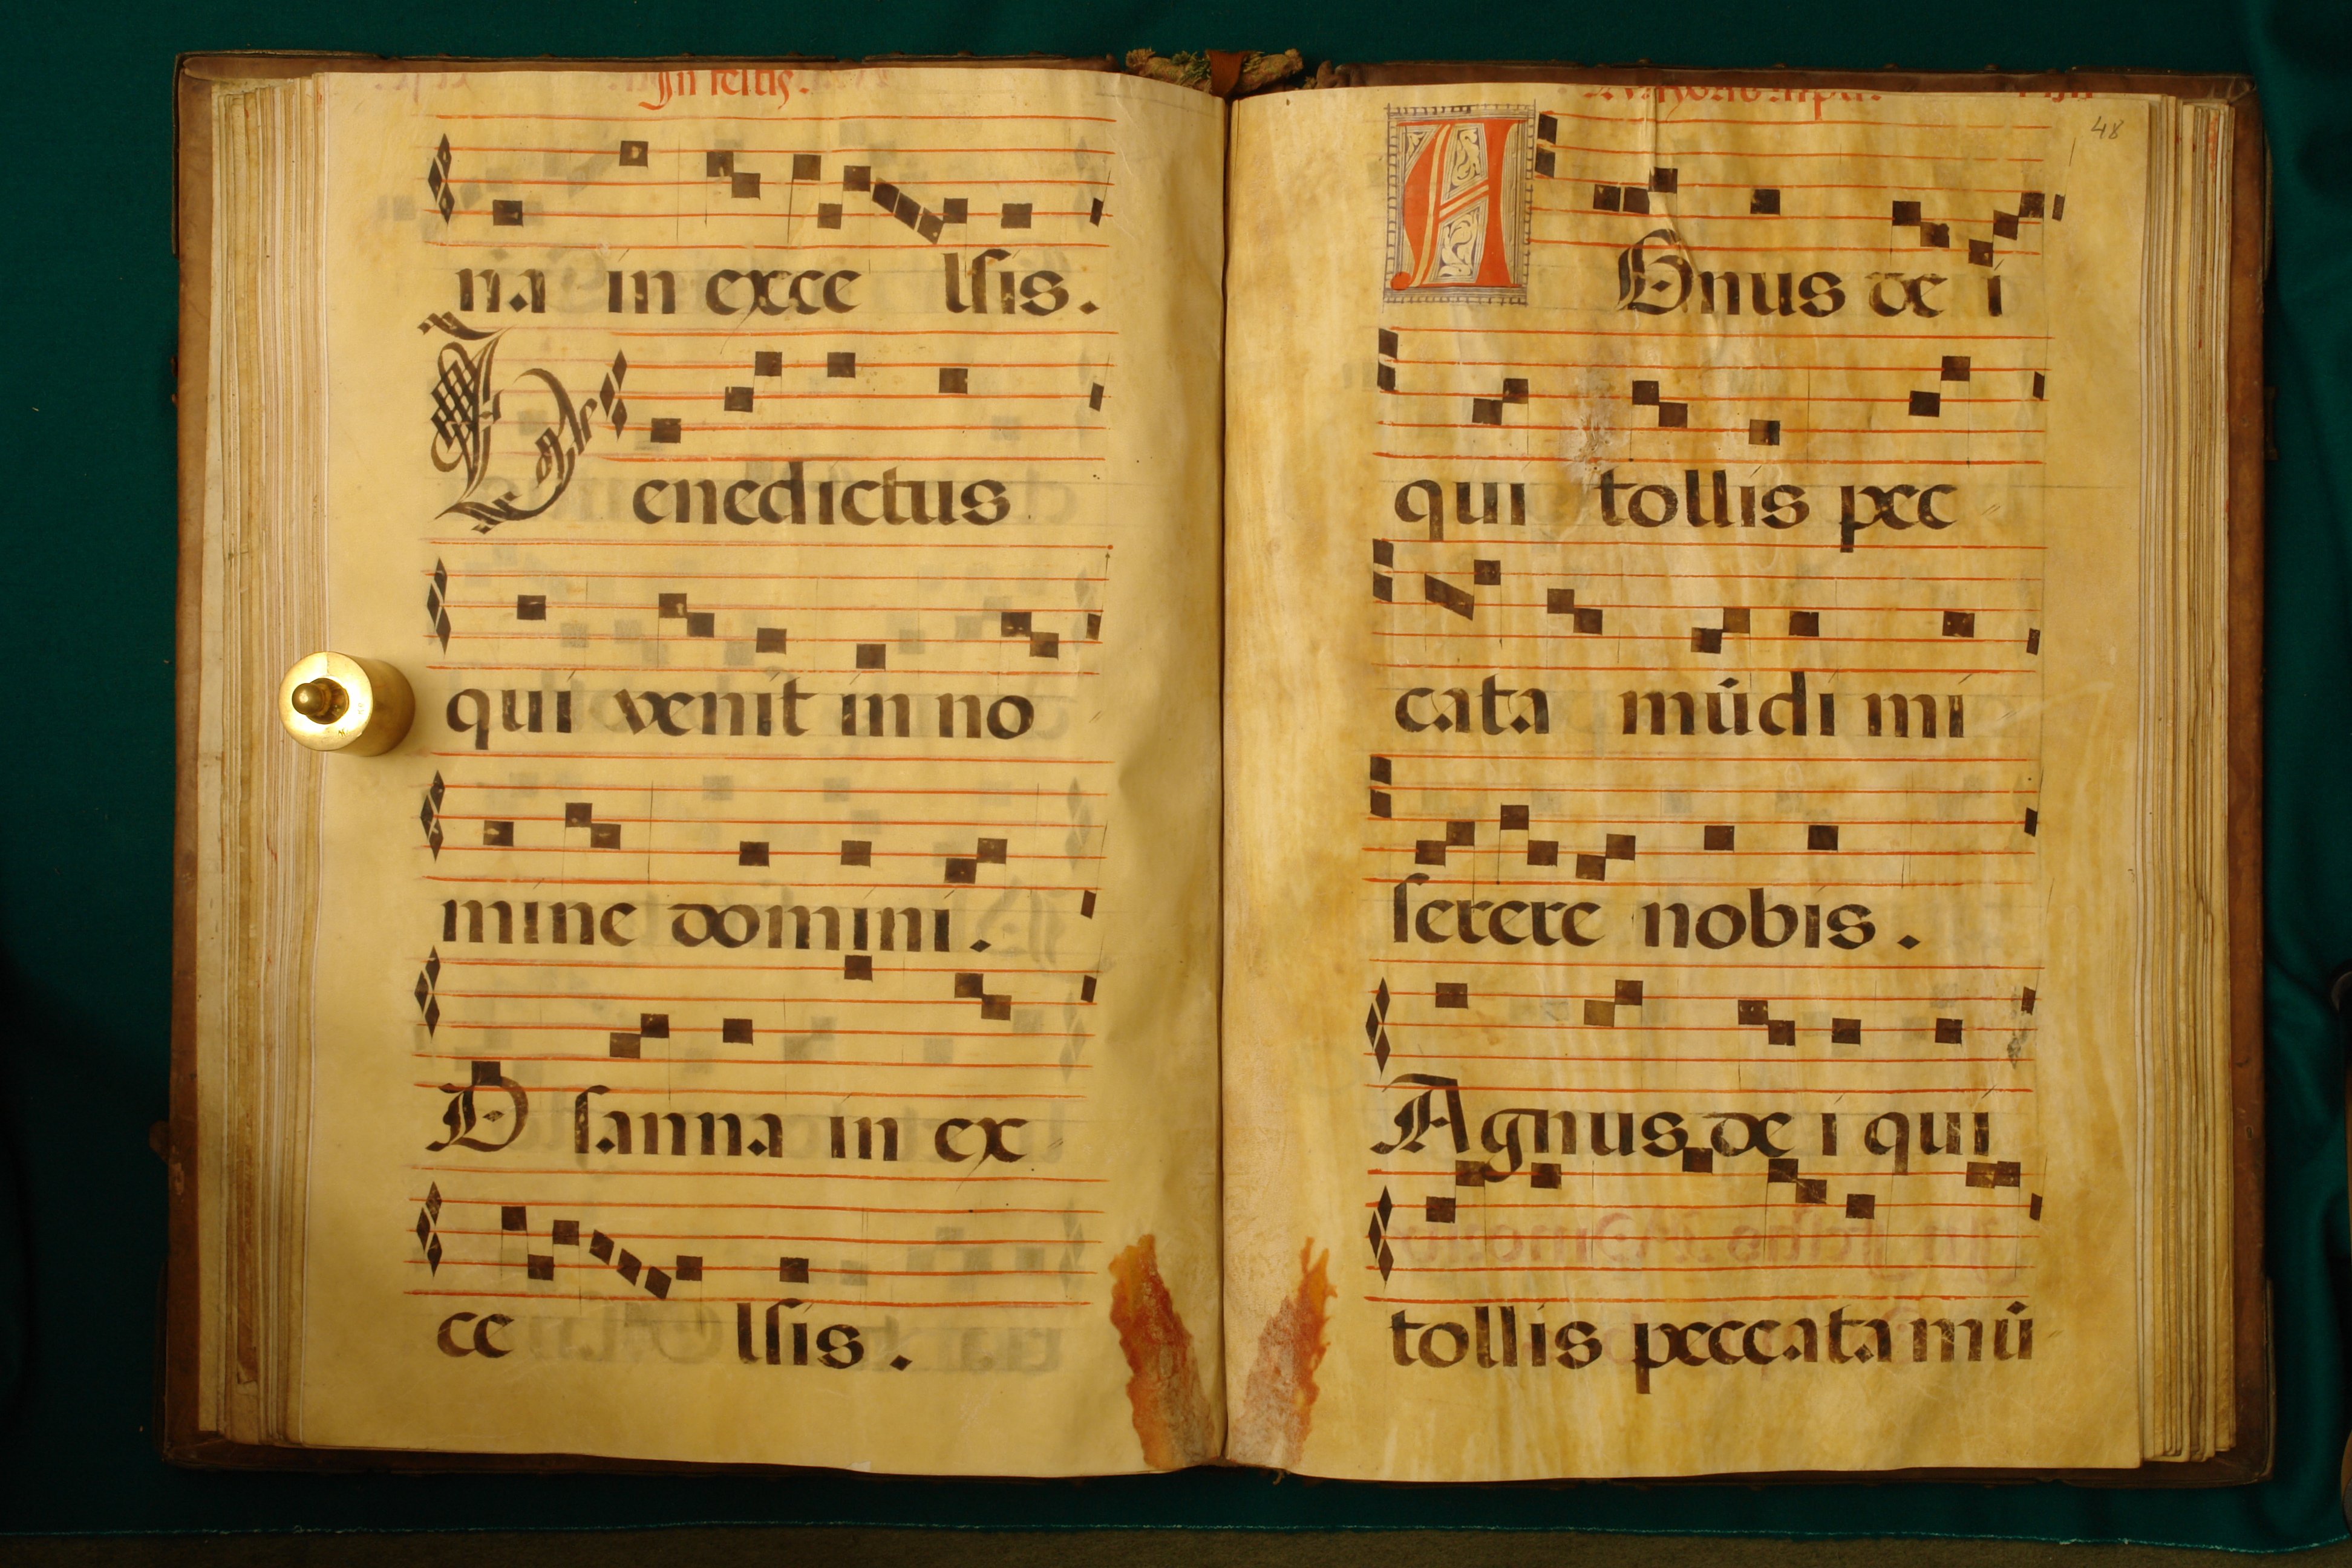 In festis.
na in exce lſis.
Benedictus
qui venit in no
mine domini.
O ſanna in ex
ce lſis.
48
AGnus de i
qui tollis pec
cata mūdi mi
ſerere nobis.
Agnus de i qui
tollis peccata mū